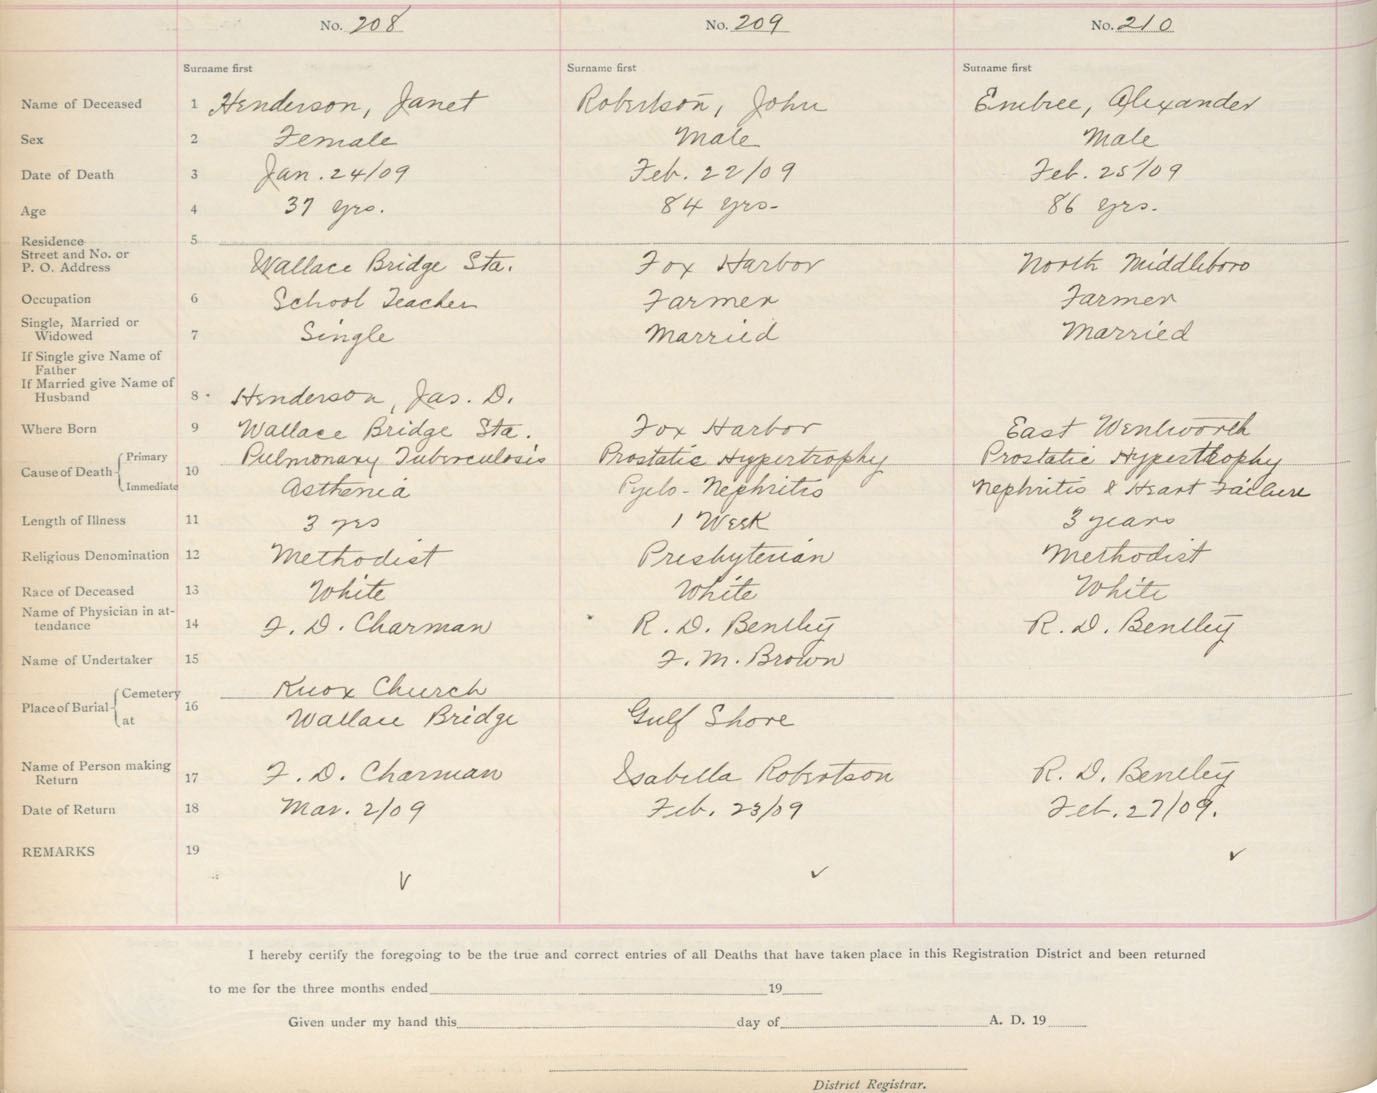 No. 208 No. 209 No. 210
Surname first Surname first Surname first
Name of Deceased 1 Henderson, Janet Robertson, John Embree, Alexander
Sex 2 Female Male Male
Date of Death 3 Jan. 24/09 Feb. 22/09 Feb. 25/09
Age 4 37 yrs. 84 yrs- 86 yrs-
Residence 5
Street and No. or
P. O. Address Wallace Bridge Sta. Fox Harbor North Middleboro
Occupation 6 School Teacher Farmer Farmer
Single, Married or
Widowed 7 Single Married Married
If Single give Name of
Father
If Married give Name of
Husband 8 Henderson, Jas. D.
Where Born 9 Wallace Bridge Sta. Fox Harbor East Wentworth
Cause of Death 10 Primary Pulmonary Tuberculosis Prostatic Hypertrophy Prostatic Hypertrophy
Immediate Asthenia Pyelo-Nephritis Nephritis & Heart Failure
Length of Illness 11 3 yrs 1 Week 3 years
Religious Denomination 12 Methodist Presbyterian Methodist
Race of Deceased 13 White White White
Name of Physician in at-
tendance 14 F. D. Charman R. D. Bentley R. D. Bentley
Name of Undertaker 15 F. M. Brown
Place of Burial 16 Cemetery Knox Church
at Wallace Bridge Gulf Shore
Name of Person making
Return 17 F. D. Charman Isabella Robertson R. D. Bentley
Date of Return 18 Mar. 2/09 Feb. 23/09 Feb. 27/09.
REMARKS 19
I hereby certify the foregoing to be the true and correct entries of all Deaths that have taken place in this Registration District and been returned
to me for the three months ended 19
Given under my hand this day of A. D. 19
District Registrar.